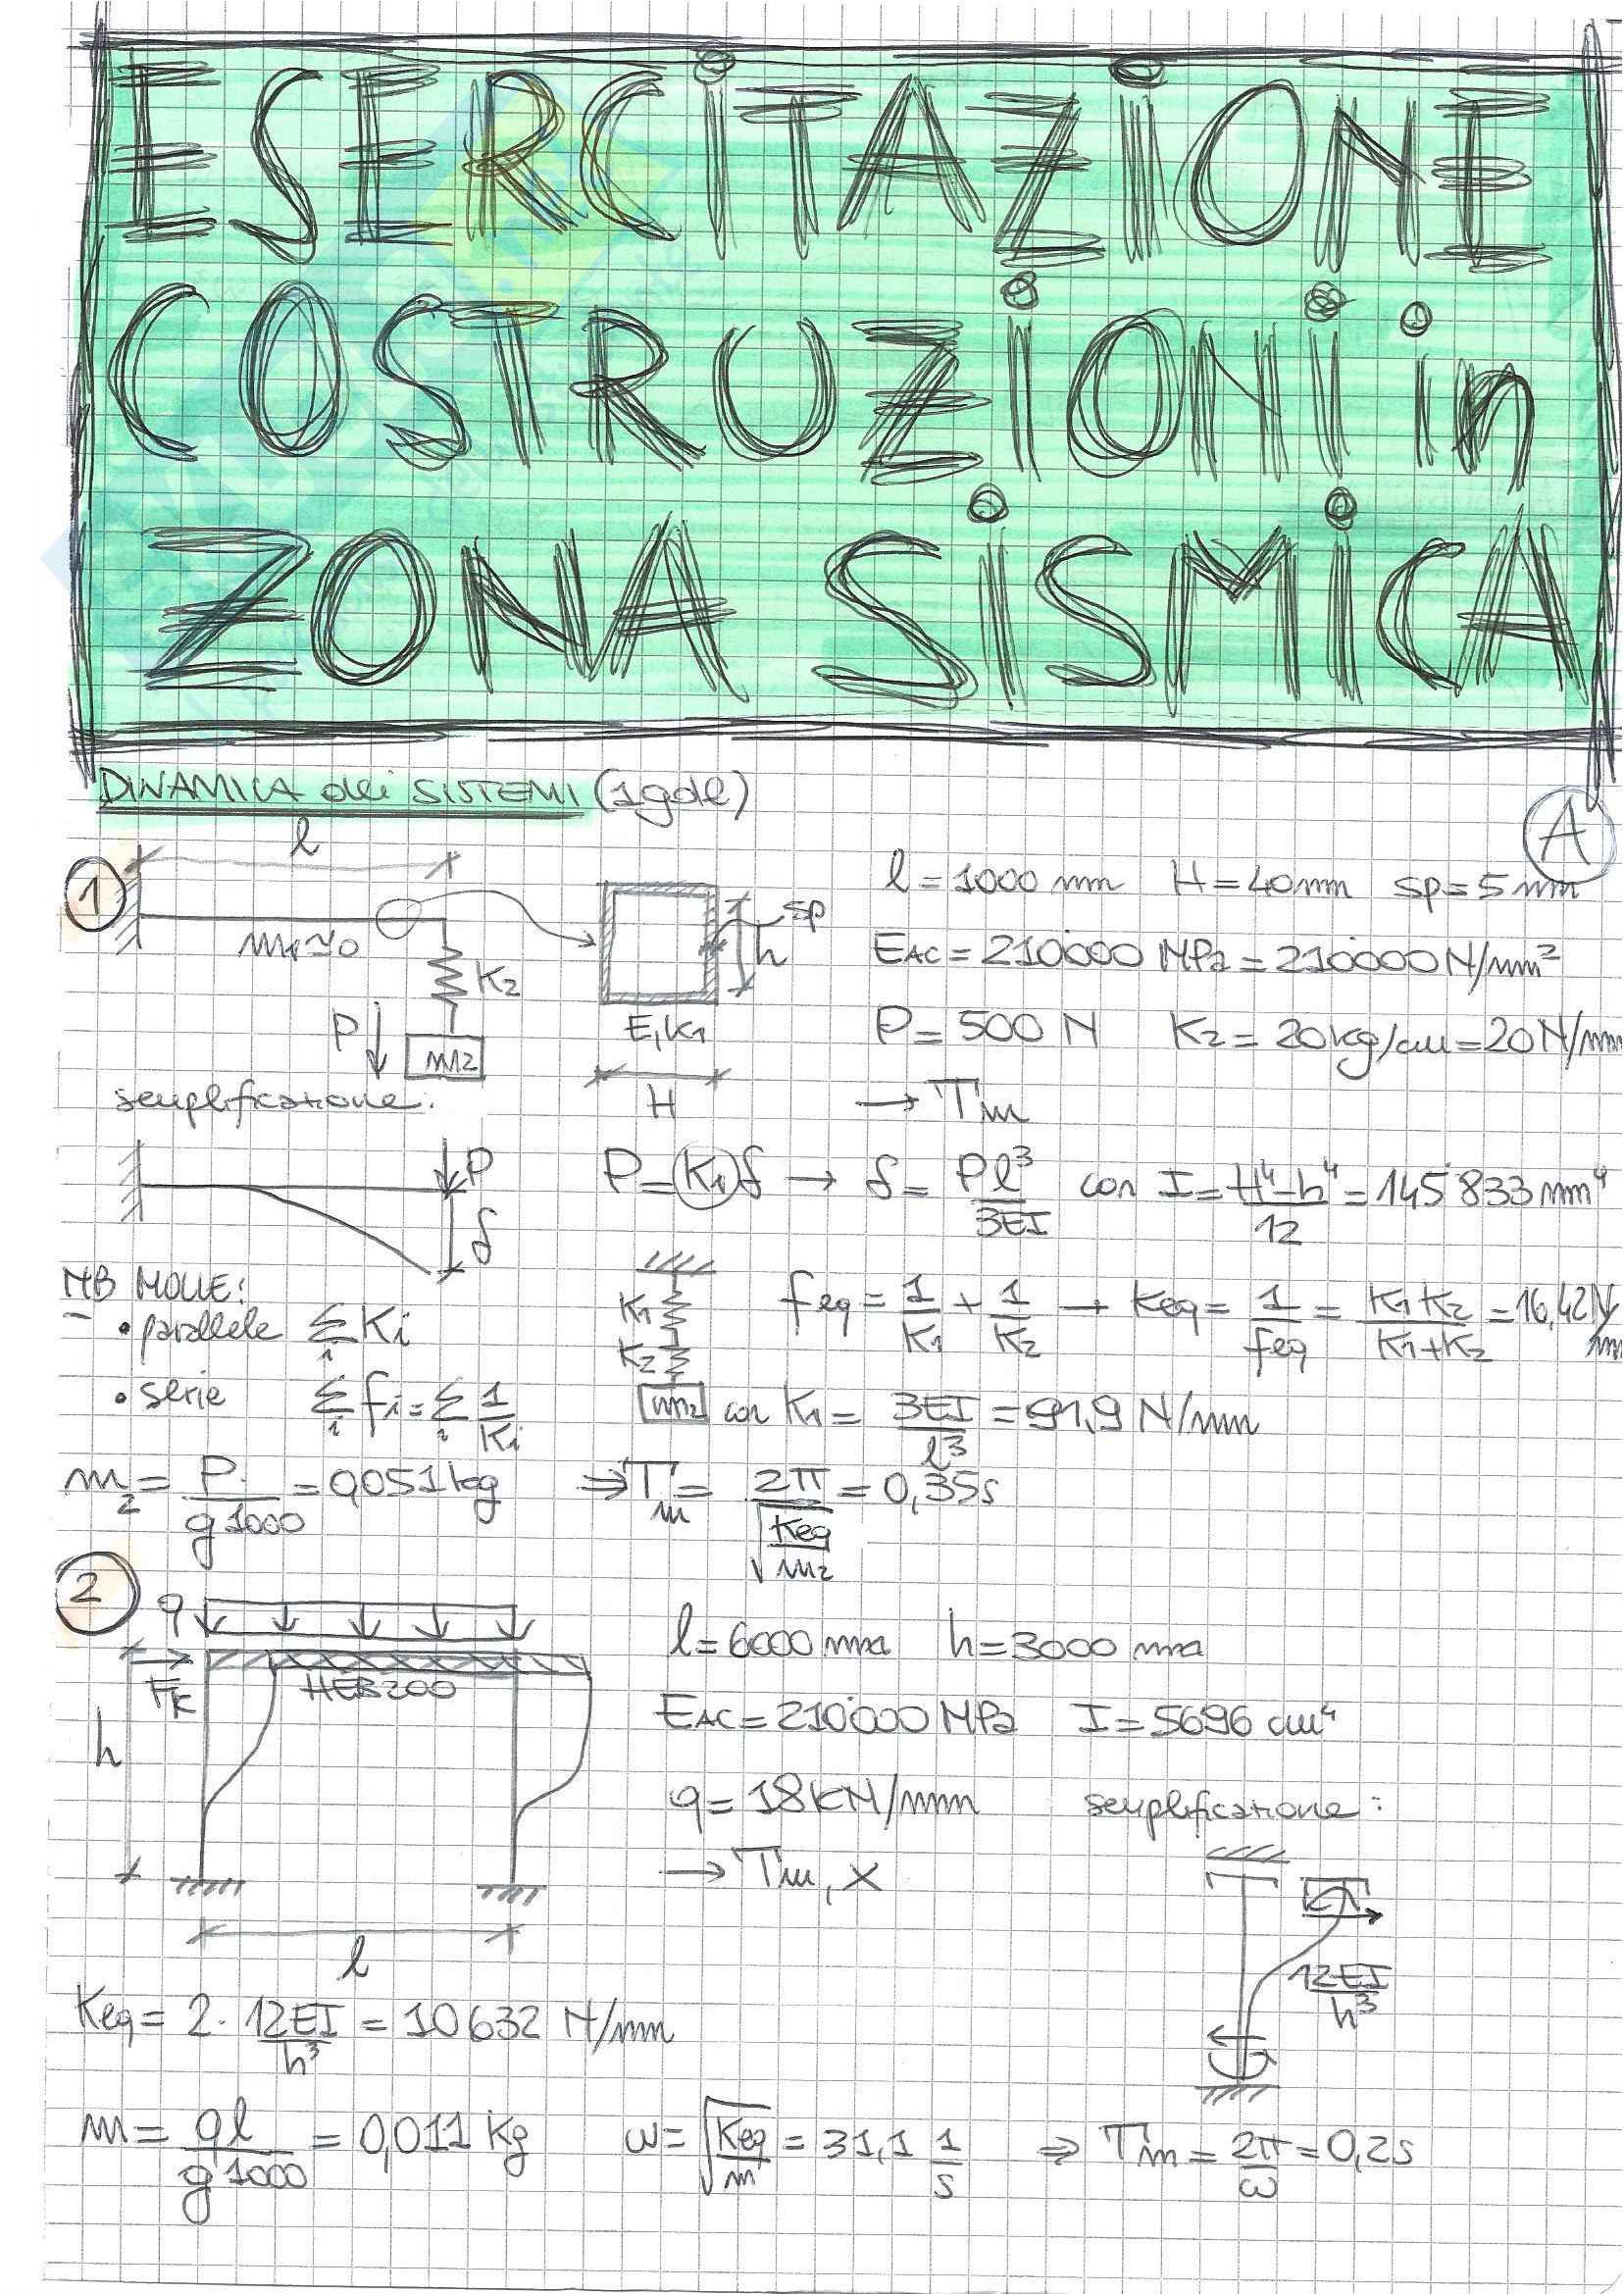 ESERCITAZIONI
COSTRUZIONI in
ZONA SISMICA
DINAMICA dei SISTEMI (1gdl)
A
1
l
l = 1000 mm H = 40mm sp = 5 mm
m1≈0
K2
sp
h
EAC = 210'000 MPa = 210'000 N/mm²
P
m2
E, K1
H
P = 500 N K2 = 20kg/cm = 20 N/mm
semplificazione:
→ Tm
P
δ
P = K1 δ → δ = Pl³/3EI con I = H⁴-h⁴/12 = 145'833 mm⁴
NB MOLLE:
• parallele Σi Ki
K1
K2
m2
feq = 1/K1 + 1/K2 → Keq = 1/feq = K1 K2/K1+K2 = 16,42 N/mm
• serie Σi fi = Σi 1/Ki
con K1 = 3EI/l³ = 91,9 N/mm
m2 = P/g 1000 = 0,051 kg ⇒ Tm = 2π/√Keq/m2 = 0,35s
2
q
FK
HEB200
h
l
l = 6000 mm h = 3000 mm
EAC = 210'000 MPa I = 5696 cm⁴
q = 18 KN/mm semplificazione:
→ Tm, x
12EI/h³
Keq = 2 · 12EI/h³ = 10632 N/mm
m = ql/g 1000 = 0,011 kg ω = √Keq/m = 31,1 1/s ⇒ Tm = 2π/ω = 0,2s